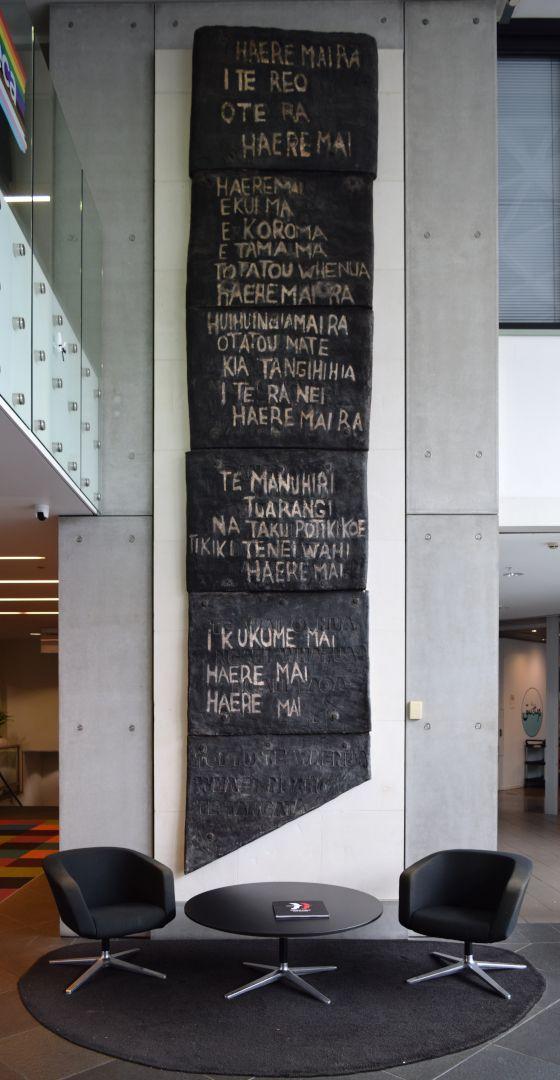 HAERE MAI RA
I TE REO
O TE RA
HAERE MAI
HAERE MAI
E KUI MA
E KOROMA
E TAMA MA
TO TATOU WHENUA
HAERE MAI RA
HUIHUINGIA MAI RA
O TATOU MATE
KIA TANGIHIHIA
I TE RA NEI
HAERE MAI RA
TE MANUHIRI
TUARANGI
NA TAKU POTIKI KOE
TIKIKI TENEI WAHI
HAERE MAI
I KUKUME MAI
HAERE MAI
HAERE MAI
TE WHENUA
TE TANGATA